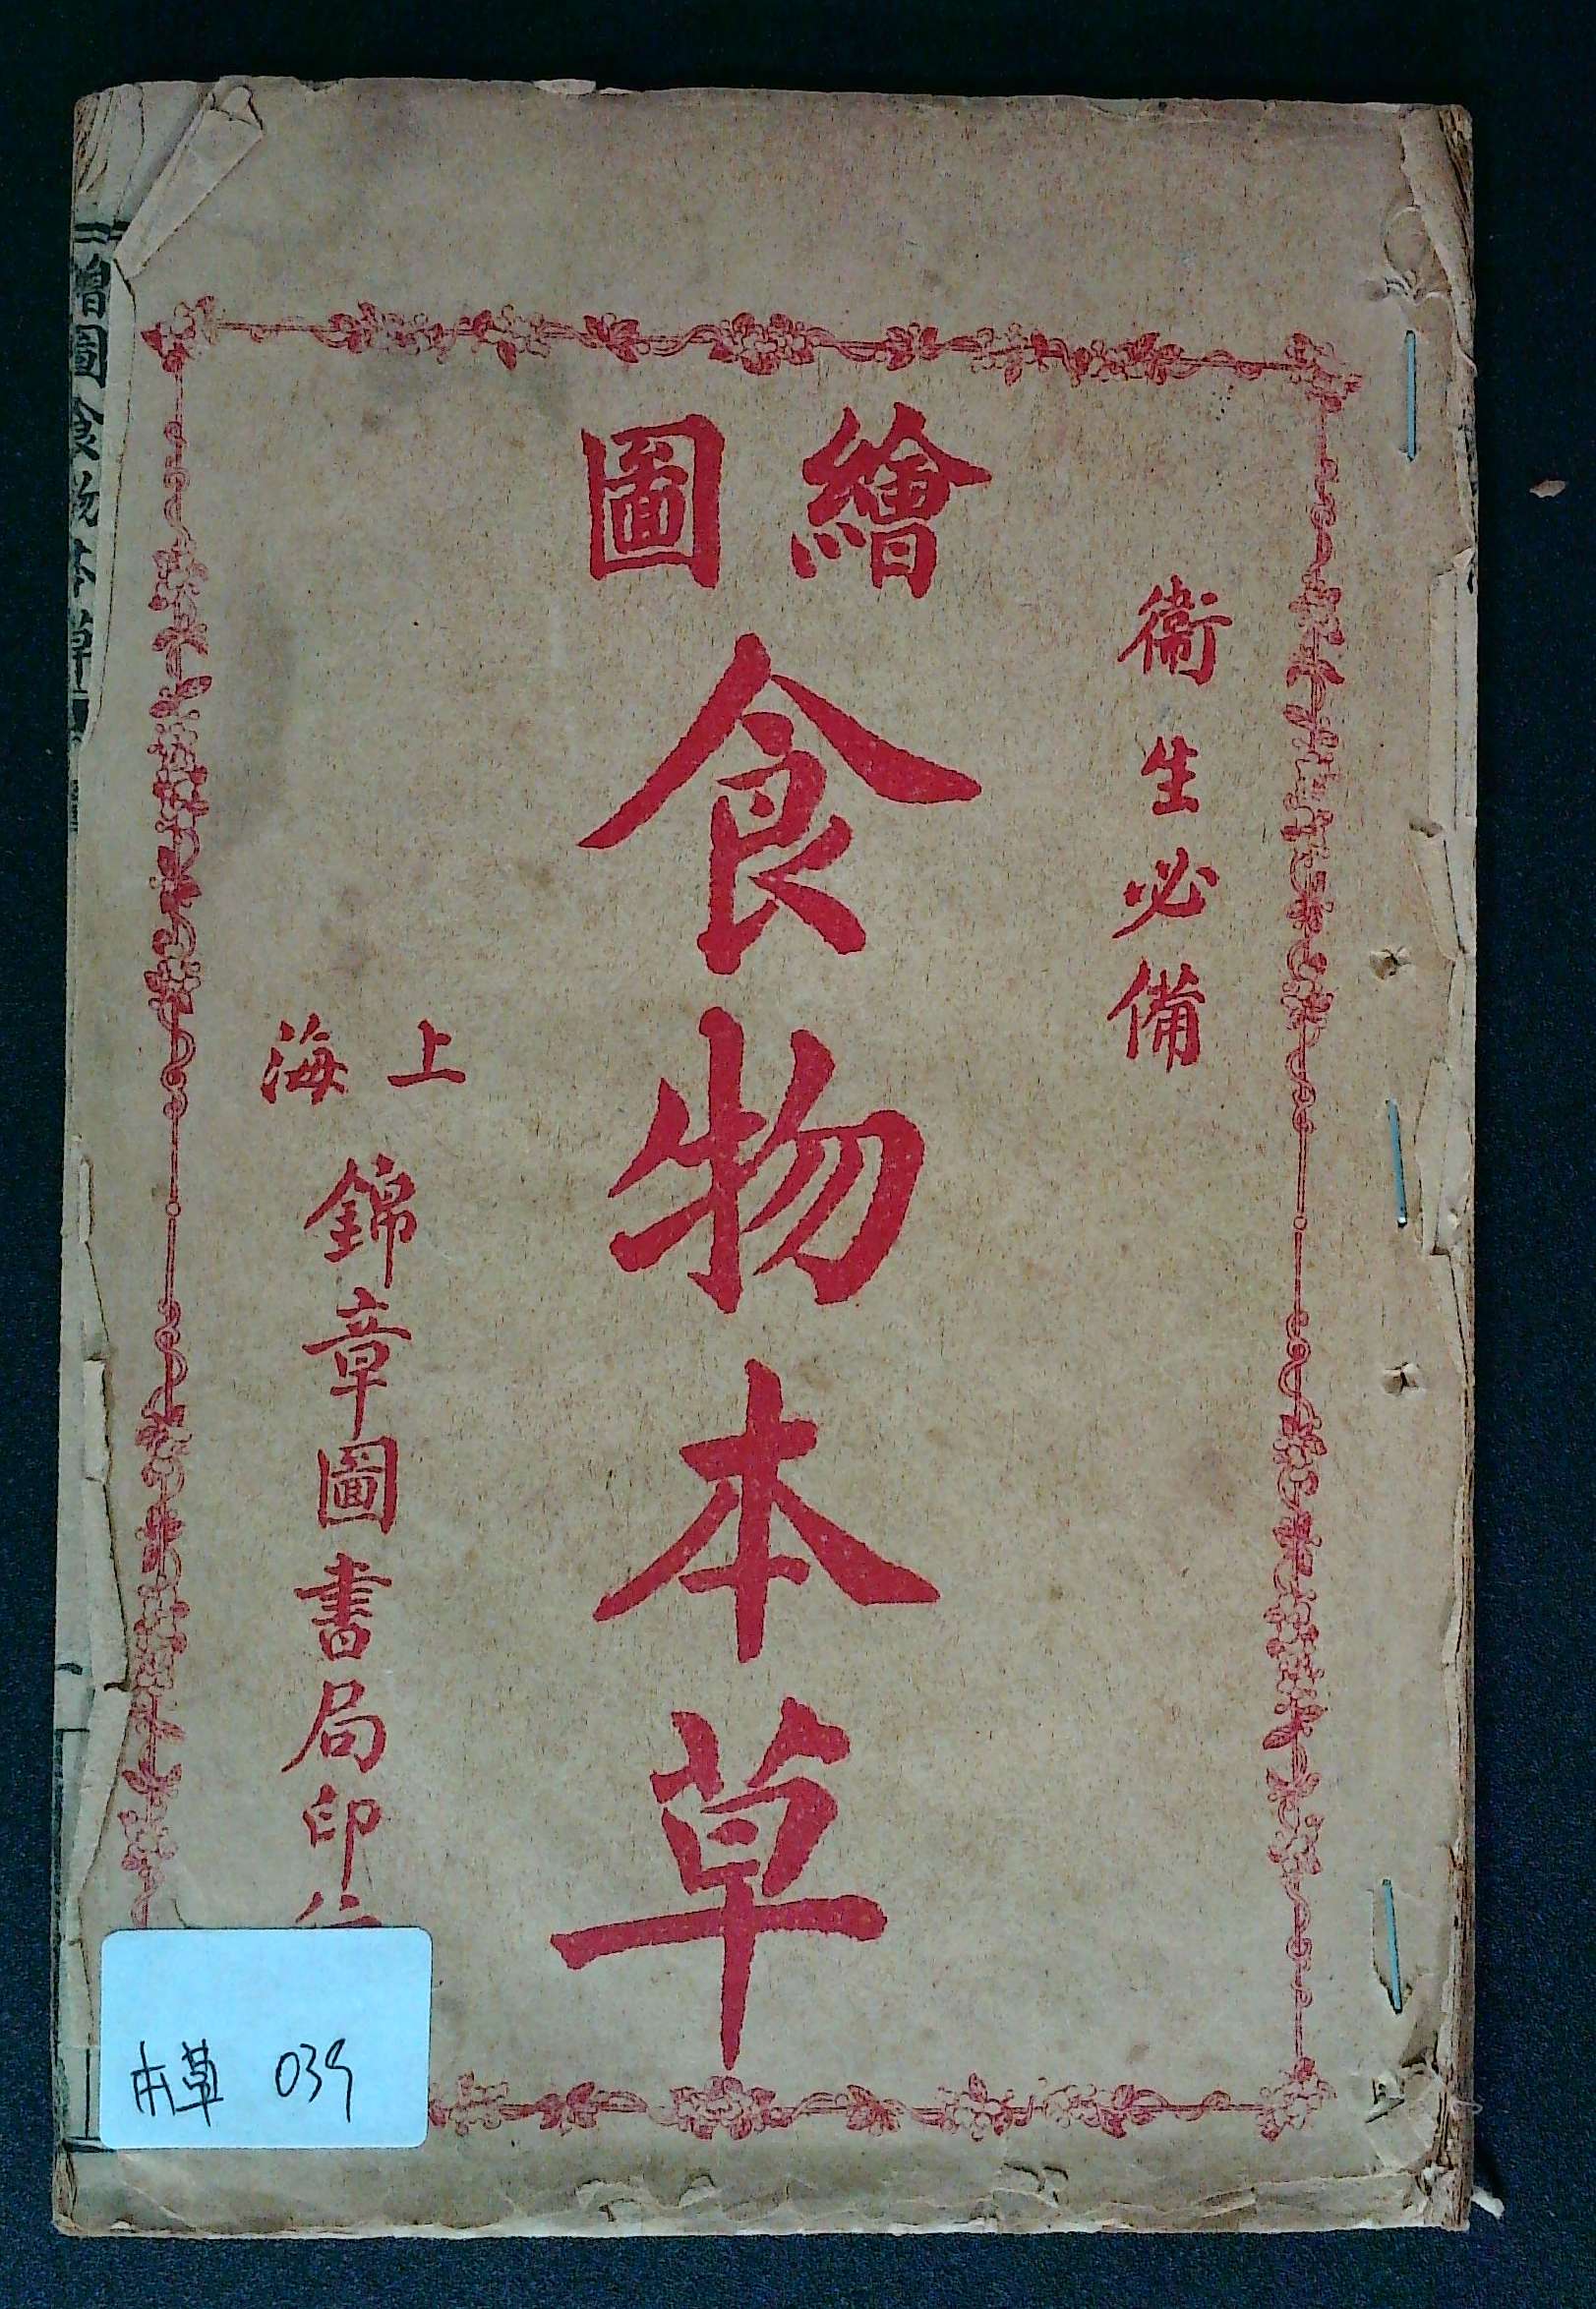 衞生必備
繪圖
食物本草
上海
錦章圖書局印
增圖食物本草
本草 039